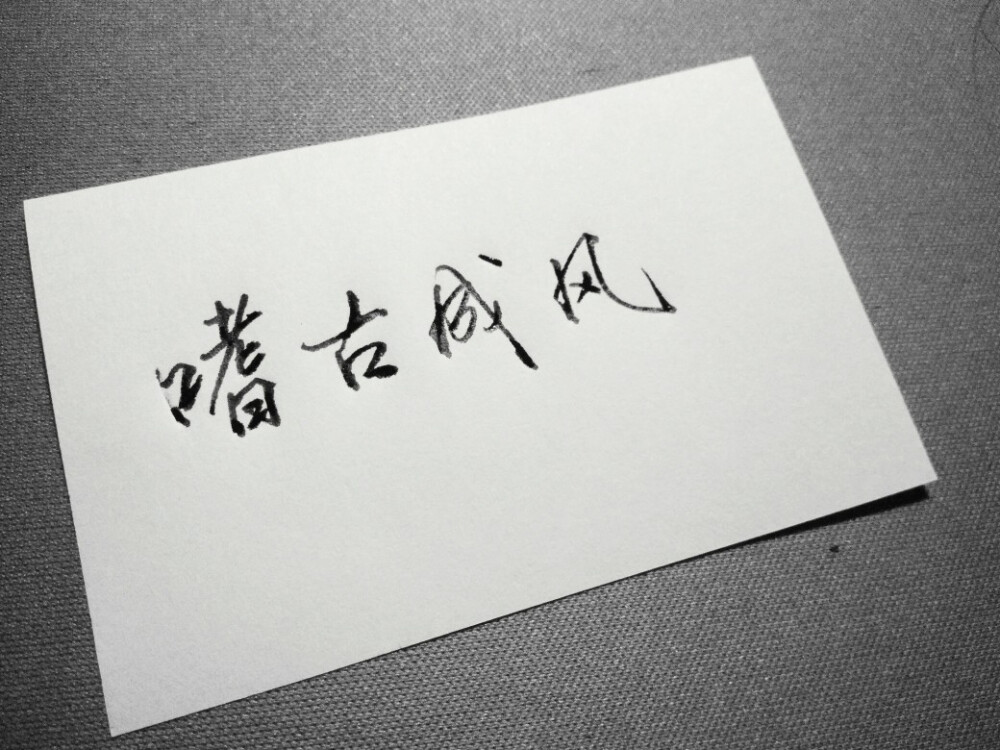 嗜古成风